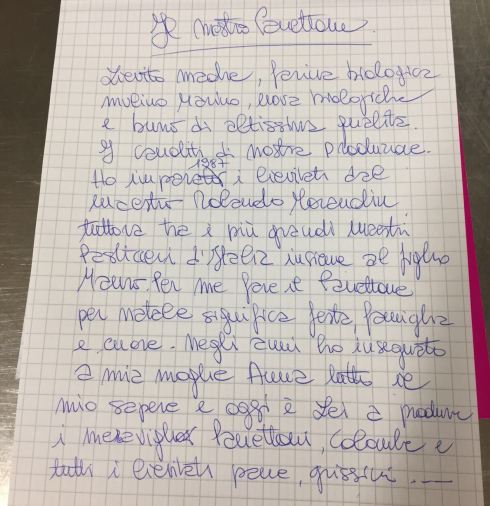 Il nostro Panettone.
Lievito madre, farina biologica
mulino Marino, uova biologiche
e burro di altissima qualità.
I canditi di nostra produzione.
1987
Ho imparato i lievitati dal
maestro Rolando Morandin
tuttora tra i più grandi maestri
Pasticceri d'Italia insieme al figlio
Mauro. Per me fare il Panettone
per natale significa festa, famiglia
e cuore. Negli anni ho insegnato
a mia moglie Anna tutto il
mio sapere e oggi è Lei a produrre
i meravigliosi Panettoni, Colombe e
tutti i lievitati pane, grissini ...